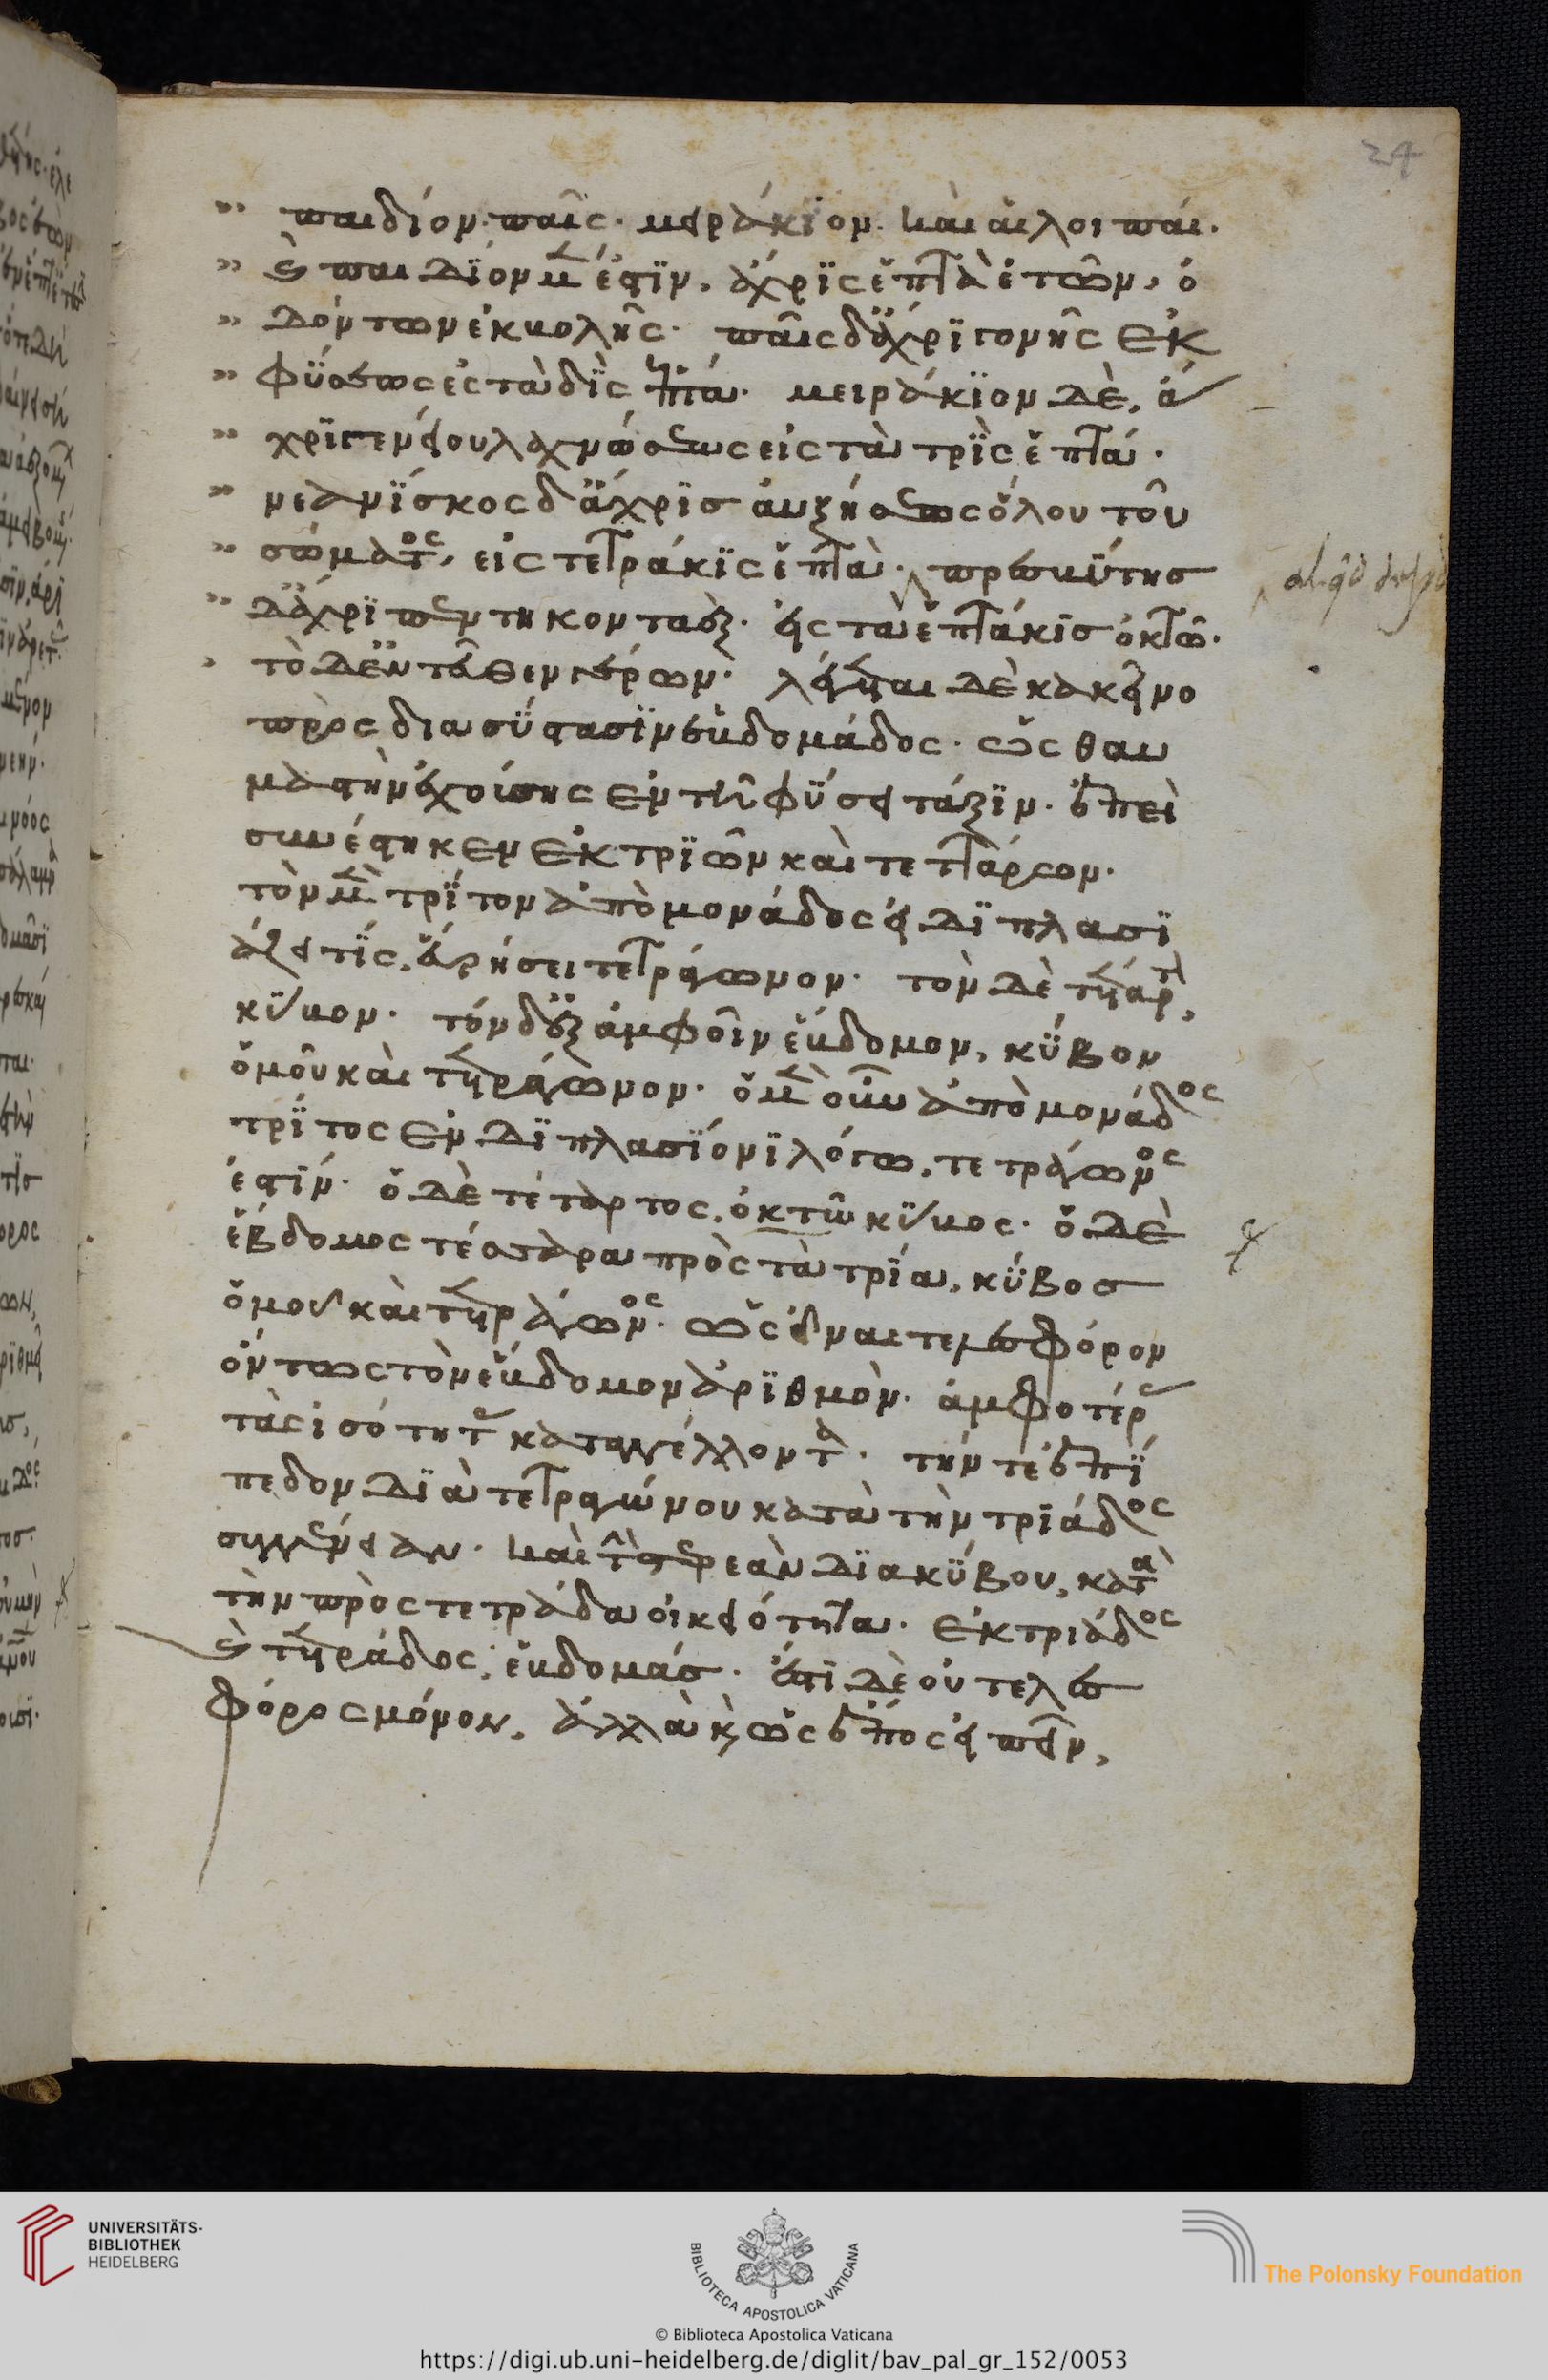 24
παιδίον· παῖς· μειράκιον· καὶ αἱ λοιπαί·
καὶ παιδίον μέν ἐστιν, ἄχρις ἑπτὰ ἐτῶν, ὀ
δόντων ἐκβολῆς· παῖς δ' ἄχρι γονῆς ἐκ
φύσεως ἐς τὰ δὶς ἑπτά· μειράκιον δὲ, ἄ
χρι γενείου λαχνώσεως εἰς τὰ τρὶς ἑπτά·
νεανίσκος δ' ἄχρις αὐξήσεως ὅλου τοῦ
σώματος, εἰς τετράκις ἑπτά· πρεσβύτης
δ' ἄχρι πεντήκοντα ἕξ· εἰς τὰ ἑπτάκις ὀκτώ·
τὸ δ' ἐντεῦθεν γέρων· λέγεται δὲ κἀκεῖνο
πρὸς διασύστασιν ἑβδομάδος· ὡς θαυ
μαστὴν ἐχούσης ἐν τῇ φύσει τάξιν· ἐπεὶ
συνέστηκεν ἐκ τριῶν καὶ τεττάρσον·
τὸν μὲν τρίτον ἀπὸ μονάδος εἰ διπλασι
άζει τίς, εὑρήσει τετράγωνον· τὸν δὲ τέταρτον,
κύβον· τὸν δ' ἐξ ἀμφοῖν ἕβδομον, κύβον
ὁμοῦ καὶ τετράγωνον· ὁ μὲν οὖν ἀπὸ μονάδος
τρίτος ἐν διπλασίονι λόγω, τετράγωνος
ἐστίν· ὁ δὲ τέταρτος, ὀκτὼ κύβος· ὁ δὲ
ἕβδομος τέσσαρα πρὸς τὰ τρία, κύβος
ὁμοῦ καὶ τετράγωνος· ὡς εἶναι τελεσφόρον
ὄντως τὸν ἕβδομον ἀριθμὸν· ἀμφοτέρας
τὰς ἰσότητας καταγγέλλοντα· τήν τε ἐπί
πεδον διὰ τετραγώνου κατὰ τὴν τριάδος
συγγένειαν· καὶ τὴν στερεὰν διὰ κύβου, κατὰ
τὴν πρὸς τετράδα οἰκειότητα· ἐκ τριάδος
καὶ τετράδος, ἑβδομάς· ἔστι δὲ οὐ τελεσ
φόρος μόνον, ἀλλὰ καὶ ὡς ἔπος εἰπεῖν,
UNIVERSITÄTS-
BIBLIOTHEK
HEIDELBERG
BIBLIOTECA APOSTOLICA VATICANA
The Polonsky Foundation
© Biblioteca Apostolica Vaticana
https://digi.ub.uni-heidelberg.de/diglit/bav_pal_gr_152/0053